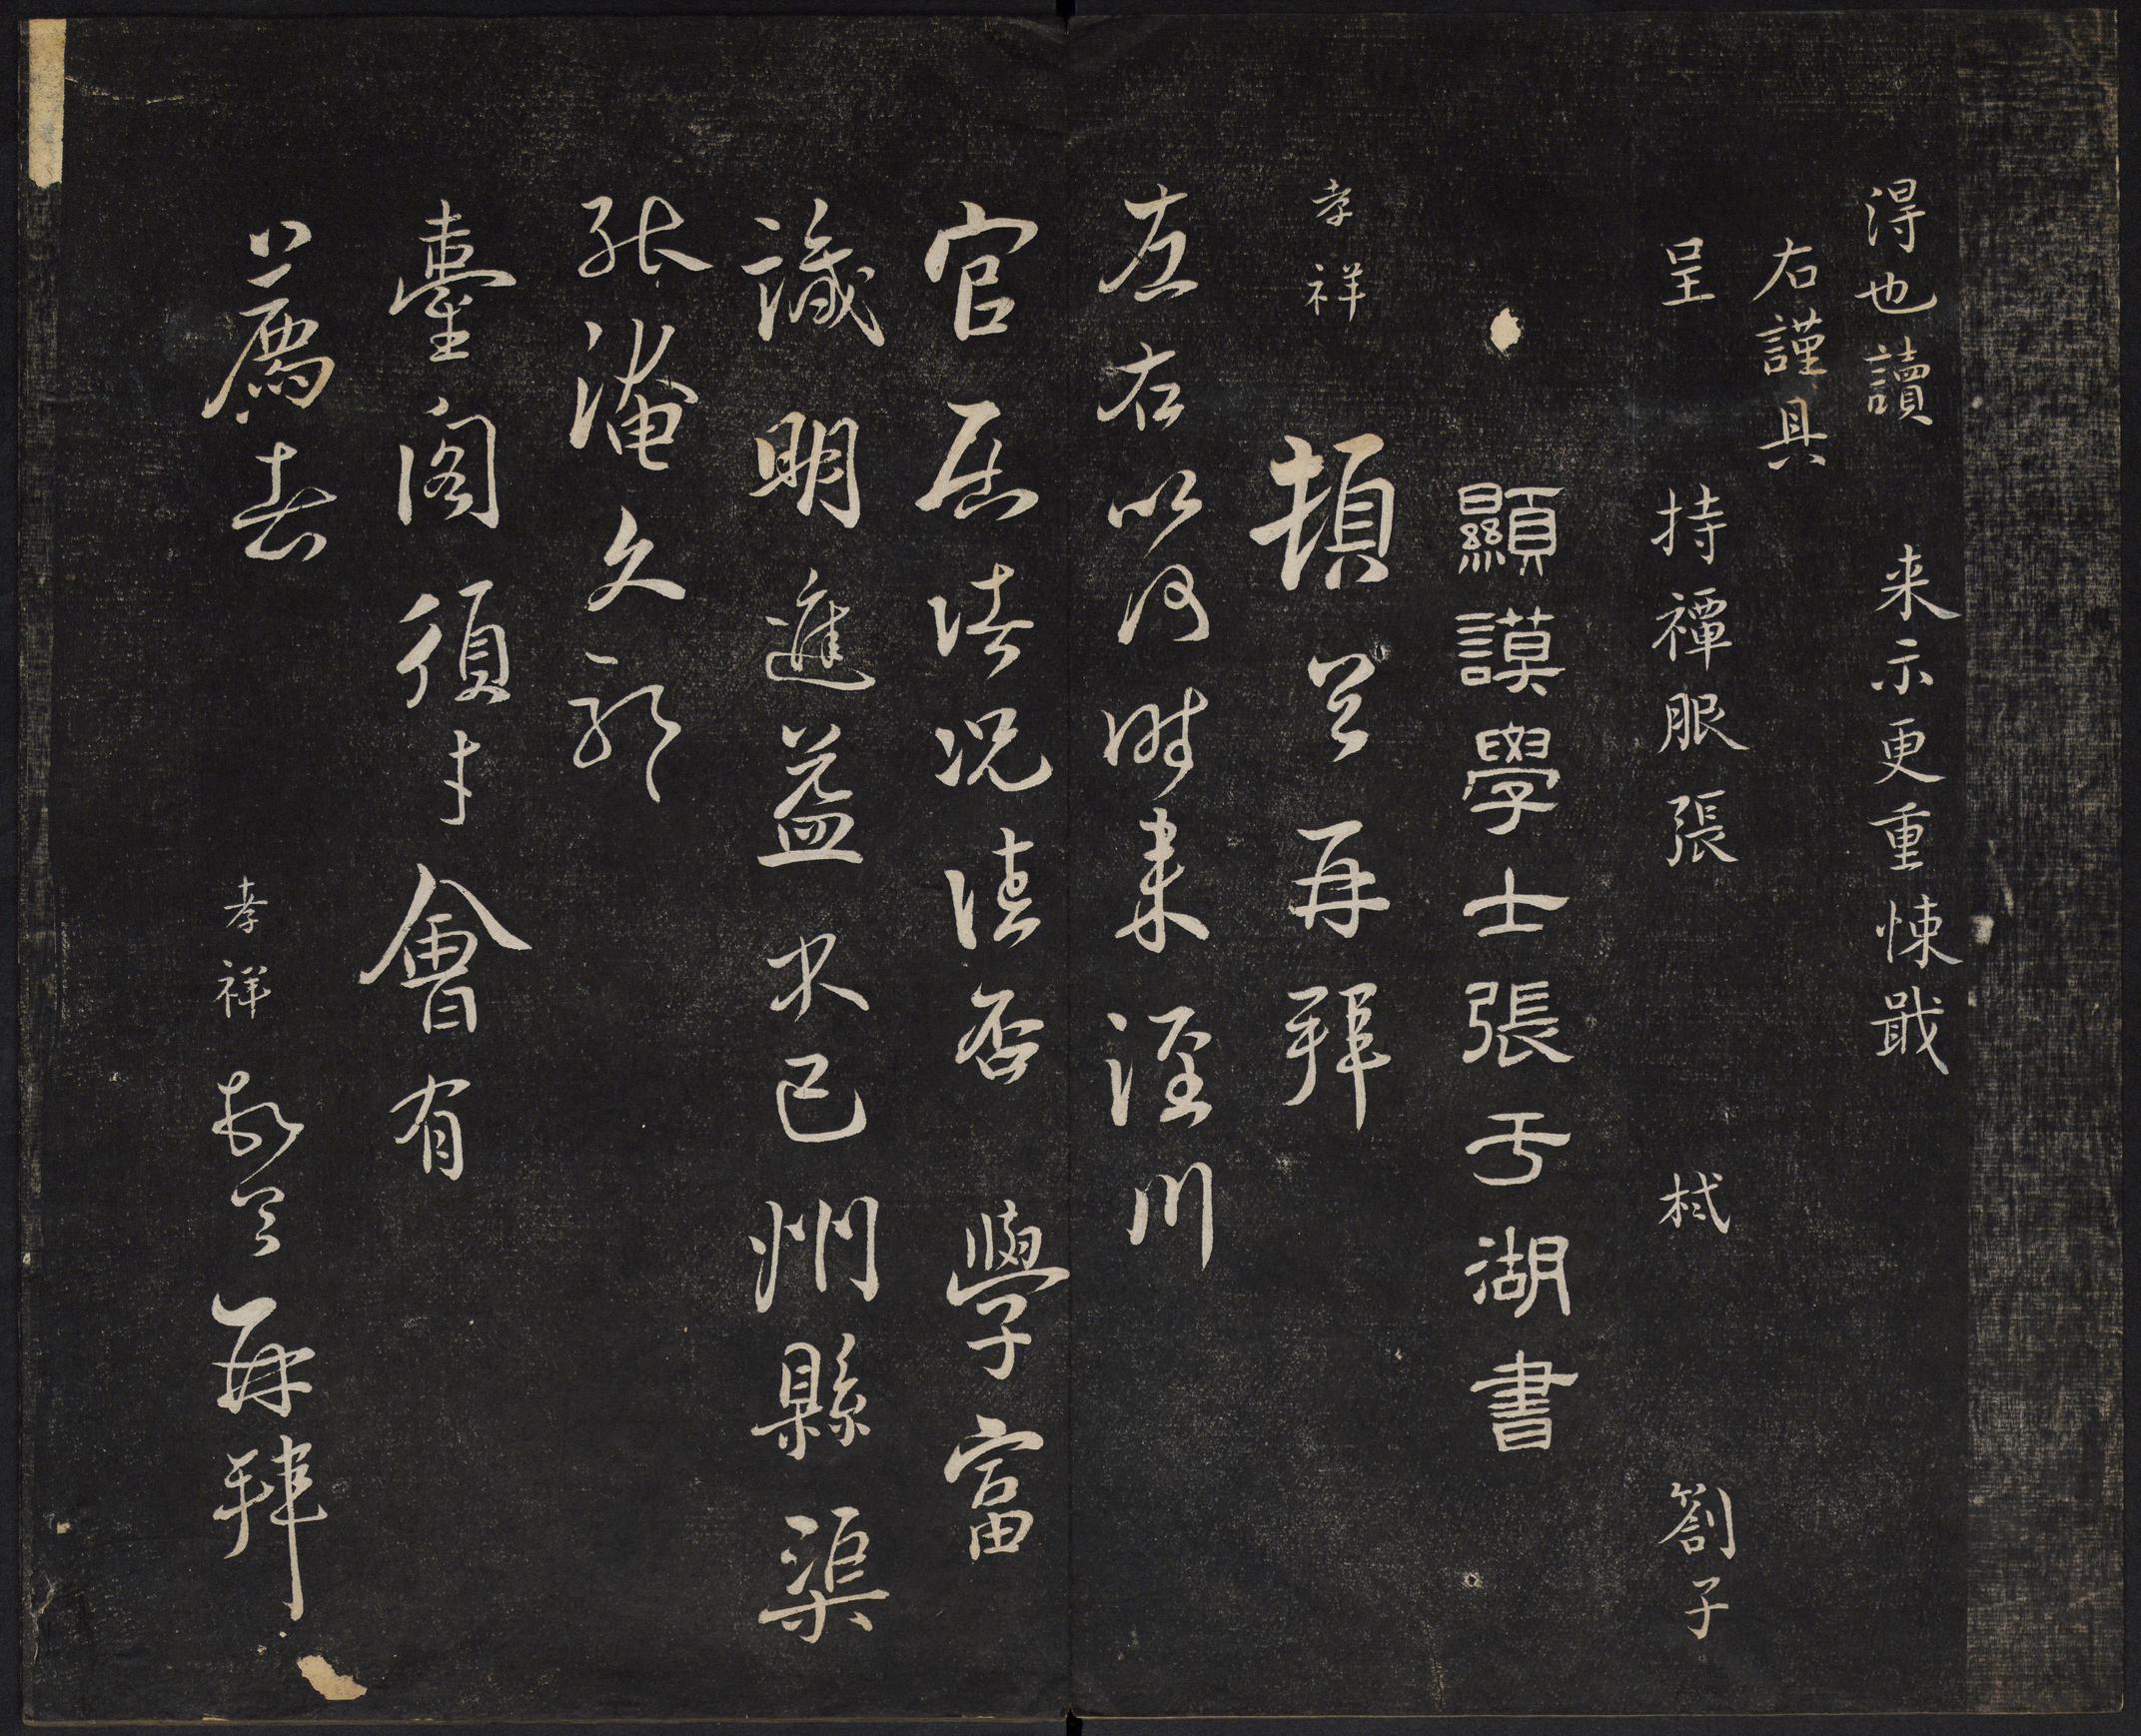 得也讀 来示更重悚戢
右謹具
呈 持禫服張 栻 劄子
顯謨學士張于湖書
孝祥 頓首再拜
左右以何時来涇川
官居佳况佳否 學富
識明進益未已州縣渠
能淹久耶
臺閣須才會有
薦者 孝祥 頓首再拜